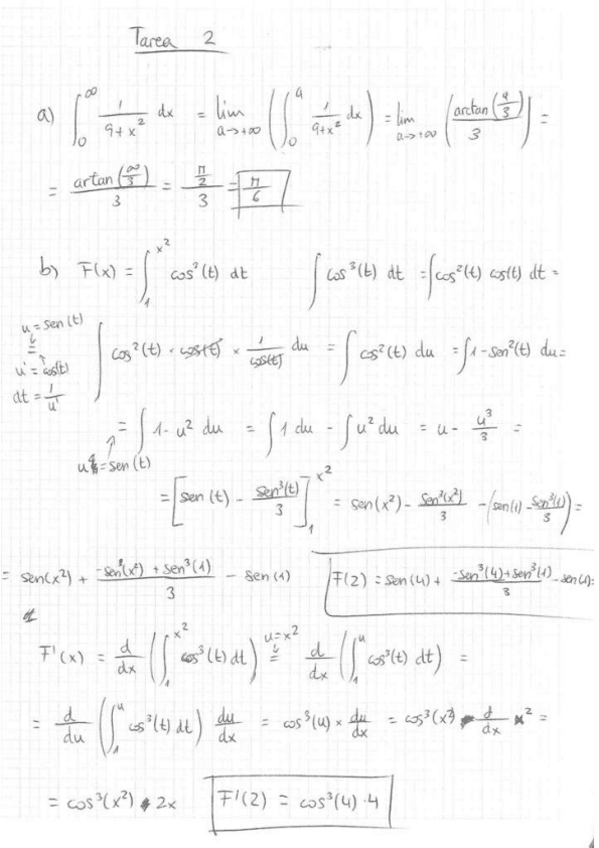 Tarea 2
a) ∫₀^∞ 1/(9+x²) dx = lim_{a→+∞} (∫₀^a 1/(9+x²) dx) = lim_{a→+∞} (arctan(a/3)/3) =
= artan(∞/3)/3 = (π/2)/3 = π/6
b) F(x) = ∫₁^{x²} cos³(t) dt ∫cos³(t) dt = ∫cos²(t) cos(t) dt =
u = sen(t)
=
u' = cos(t)
dt = 1/u'
∫ cos²(t) · cos(t) × 1/cos(t) du = ∫ cos²(t) du = ∫1-sen²(t) du =
= ∫ 1-u² du = ∫ 1 du - ∫ u² du = u - u³/3 =
u = sen(t)
= [sen(t) - sen³(t)/3]₁^{x²} = sen(x²) - sen³(x²)/3 - (sen(1) - sen³(1)/3) =
= sen(x²) + (-sen³(x²) + sen³(1))/3 - sen(1) F(2) = sen(4) + (-sen³(4)+sen³(1))/3 - sen(1)=
F'(x) = d/dx (∫₁^{x²} cos³(t) dt) u=x² = d/dx (∫₁^u cos³(t) dt) =
= d/du (∫₁^u cos³(t) dt) du/dx = cos³(u) × du/dx = cos³(x²) d/dx x² =
= cos³(x²) · 2x F'(2) = cos³(4)·4